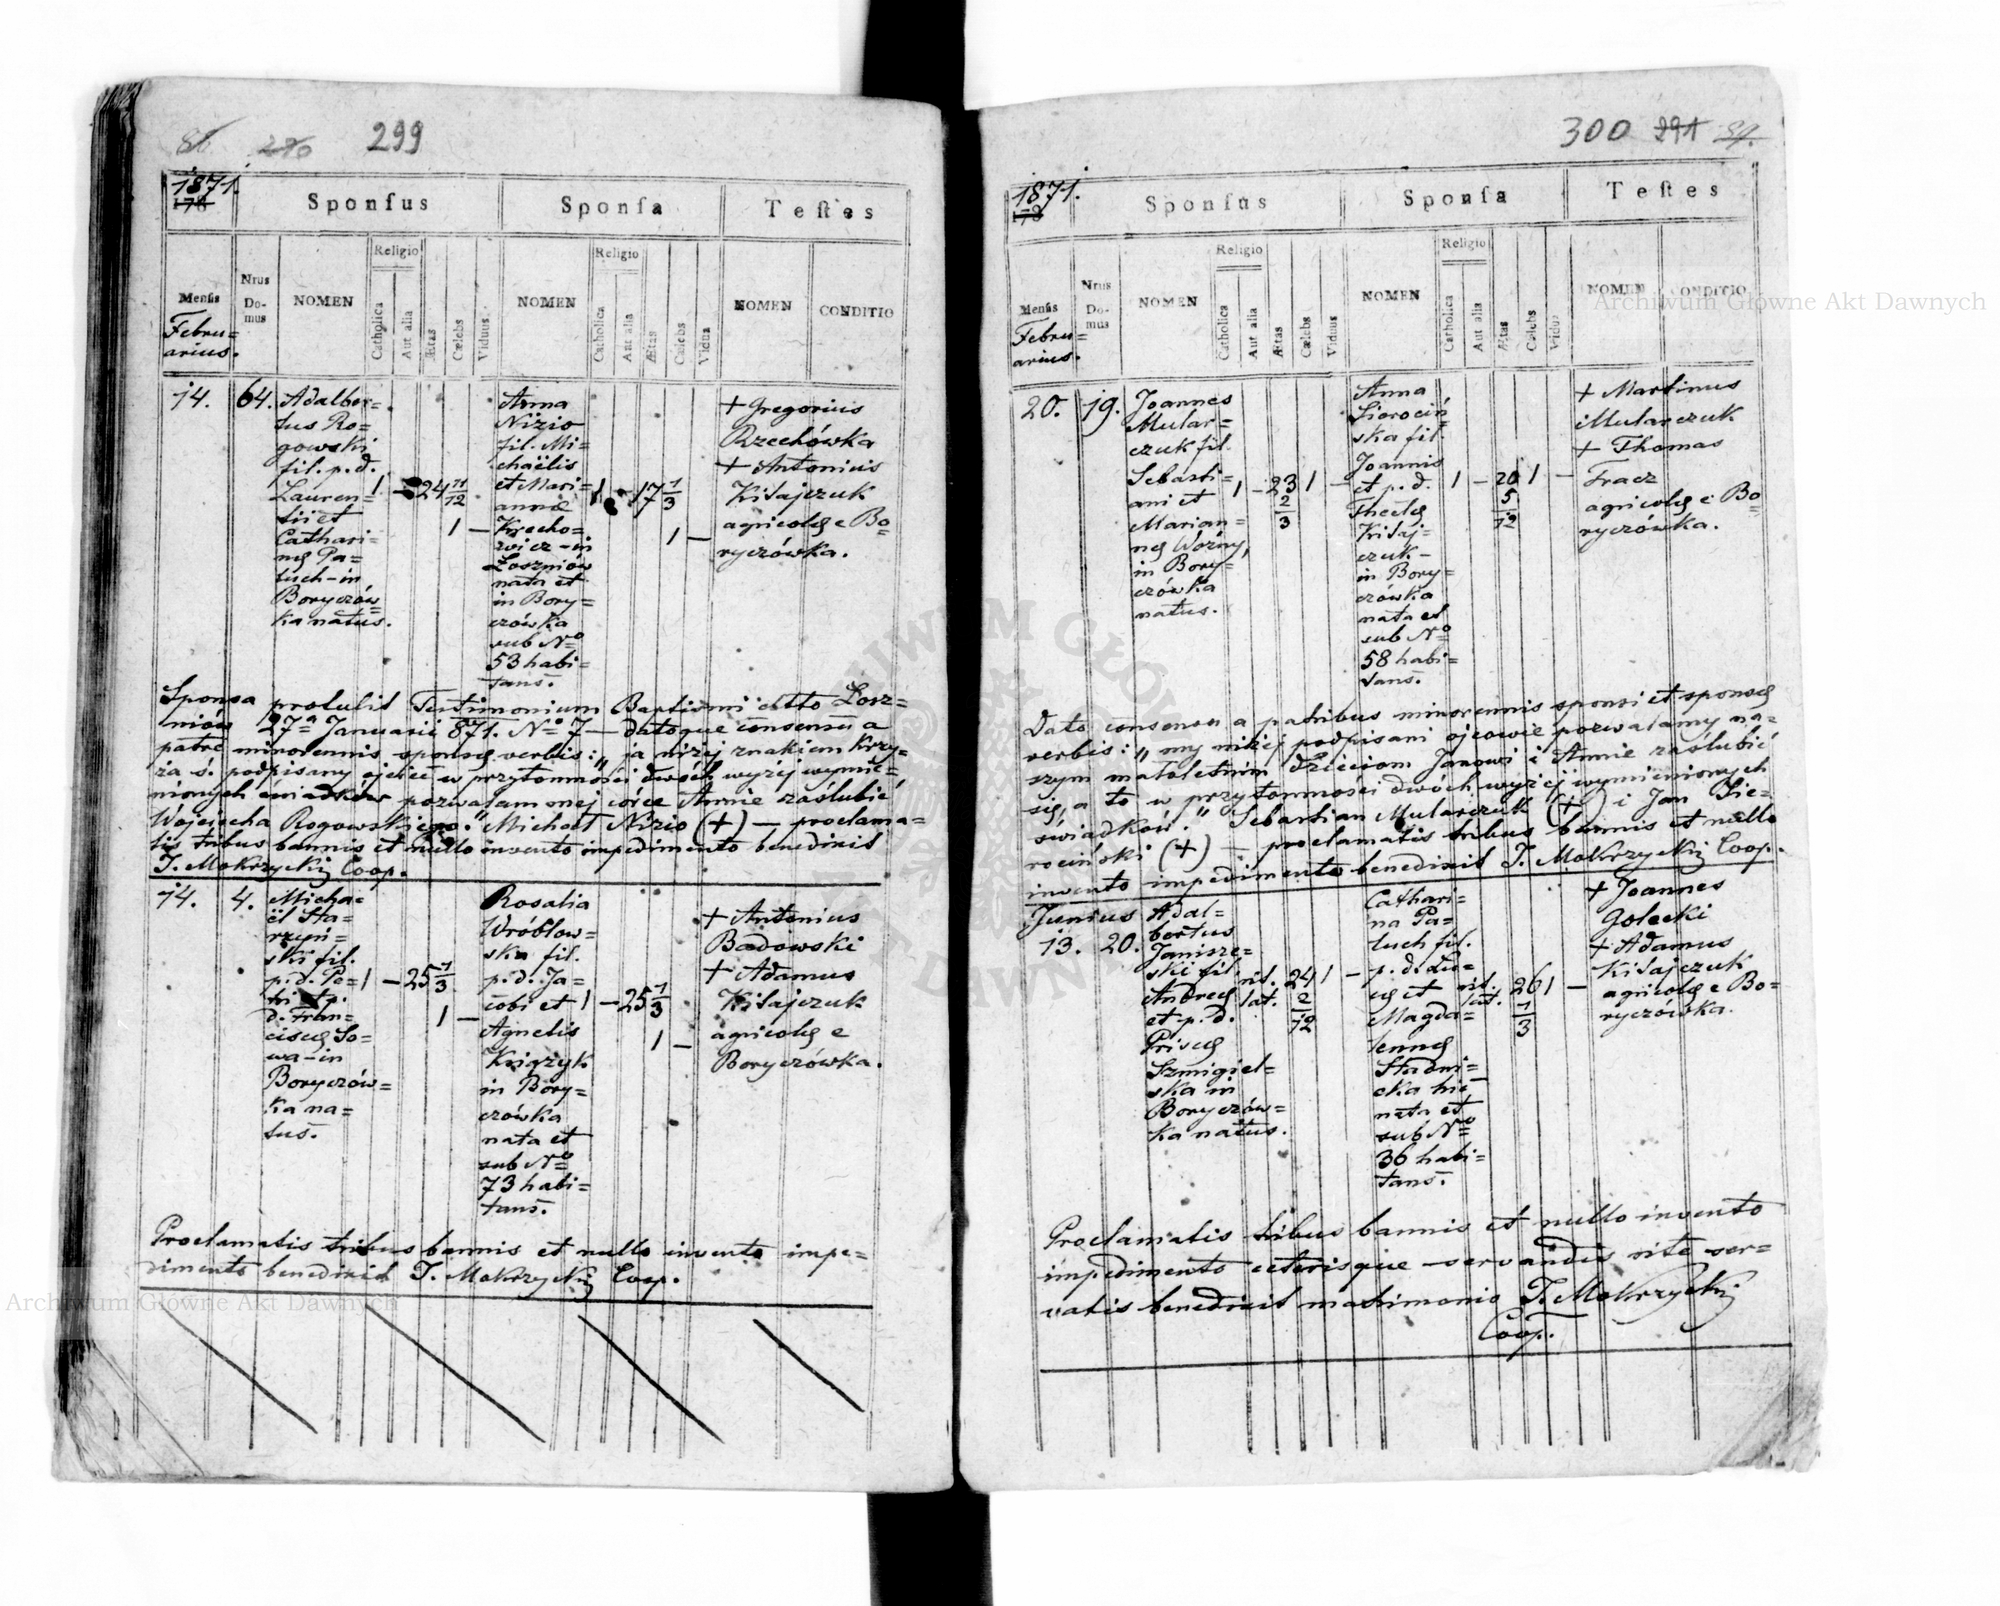 86 290 299
1871.
178
Sponſus Sponſa Teſtes
Menſis Nrus Domus NOMEN Religio Catholica Aut alia Ætas Cælebs Viduus NOMEN Religio Catholica Aut alia Ætas Cælebs Vidua NOMEN CONDITIO
Febru=
arius.
14. 64.
Adalber=
tus Ro=
gowski
fil. p. d.
Lauren=
tii et
Cathari=
næ Pa=
luch - in
Boryczów=
ka natus.
1 - 24 11/12
1 -
Anna
Nizio
fil. Mi=
chaëlis
et Mari=
annæ
Krecho=
wicz - in
Łoszniów
nata et
in Bory=
czówka
sub No
53 habi=
tans.
1 - 17 1/3
1 -
+ Gregorius
Rzechówka
+ Antonius
Kisajczuk
agricolæ e Bo=
ryczówka.
Sponsa protulit Testimonium Baptismi ddto Łosz=
niów 27a Januarii 871. No 7 - datoque consensu a
patre minorennis sponsæ verbis: „ja niżej znakiem krzy=
ża ś. podpisany ojciec w przytomności dwóch wyżej wymie=
nionych świadków pozwalam mej córce Annie zaślubić
Wojciecha Rogowskiego." Michał Nizio (+) - proclama=
tis tribus bannis et nullo invento impedimento benedixit
T. Mokrzycki Coop.
14. 4.
Micha=
ël Sta=
rzyń=
ski fil.
p. d. Pe=
tri et p.
d. Fran=
ciscæ So=
wa - in
Boryczów=
ka na=
tus.
1 - 25 1/3
1 -
Rosalia
Wróblow=
ska fil.
p. d. Ja=
cobi et
Agnetis
Książyk
in Bory=
czówka
nata et
sub No
73 habi=
tans.
1 - 25 1/3
1 -
+ Antonius
Badowski
+ Adamus
Kisajczuk
agricolæ e
Boryczówka.
Proclamatis tribus bannis et nullo invento impe=
dimento benedixit T. Mokrzycki Coop.
300 291 87.
1871.
178
Sponſus Sponſa Teſtes
Menſis Nrus Domus NOMEN Religio Catholica Aut alia Ætas Cælebs Viduus NOMEN Religio Catholica Aut alia Ætas Cælebs Vidua NOMEN CONDITIO
Febru=
arius.
20. 19.
Joannes
Mular=
czuk fil.
Sebasti=
ani et
Marian=
næ Woźny,
in Bory=
czówka
natus.
1 - 23 2/3 1 -
Anna
Sierociń
ska fil.
Joannis
et p. d.
Theclæ
Kisaj=
czuk -
in Bory=
czówka
nata et
sub No
58 habi=
tans.
1 - 20 5/12 1 -
+ Martinus
Mularczuk
+ Thomas
Fracz
agricolæ e Bo=
ryczówka.
Dato consensu a patribus minorennis sponsi et sponsæ
verbis: „my niżej podpisani ojcowie pozwalamy na=
szym małoletnim dzieciom Janowi i Annie zaślubić
się, a to w przytomności dwóch wyżej wymienionych
świadków." Sebastian Mularczuk (+) i Jan Sie=
rociński (+) - proclamatis tribus bannis et nullo
invento impedimento benedixit T. Mokrzycki Coop.
Junius
13. 20.
Adal=
bertus
Janisze=
ski fil.
Andreæ
et p. d.
Priscæ
Szmigiel=
ska in
Boryczów=
ka natus.
rit. lat. 24 2/12 1 -
Cathari=
na Pa=
luch fil.
p. d. Lu=
cæ et
Magda=
lennæ
Stadni=
cka hic
nata et
sub No
36 habi=
tans.
rit. lat. 26 1/3 1 -
+ Joannes
Golecki
+ Adamus
Kisajczuk
agricolæ e Bo=
ryczówka.
Proclamatis tribus bannis et nullo invento
impedimento ceterisque servandis rite ser=
vatis benedixit matrimonio T. Mokrzycki
Coop.
Archiwum Główne Akt Dawnych
Archiwum Główne Akt Dawnych